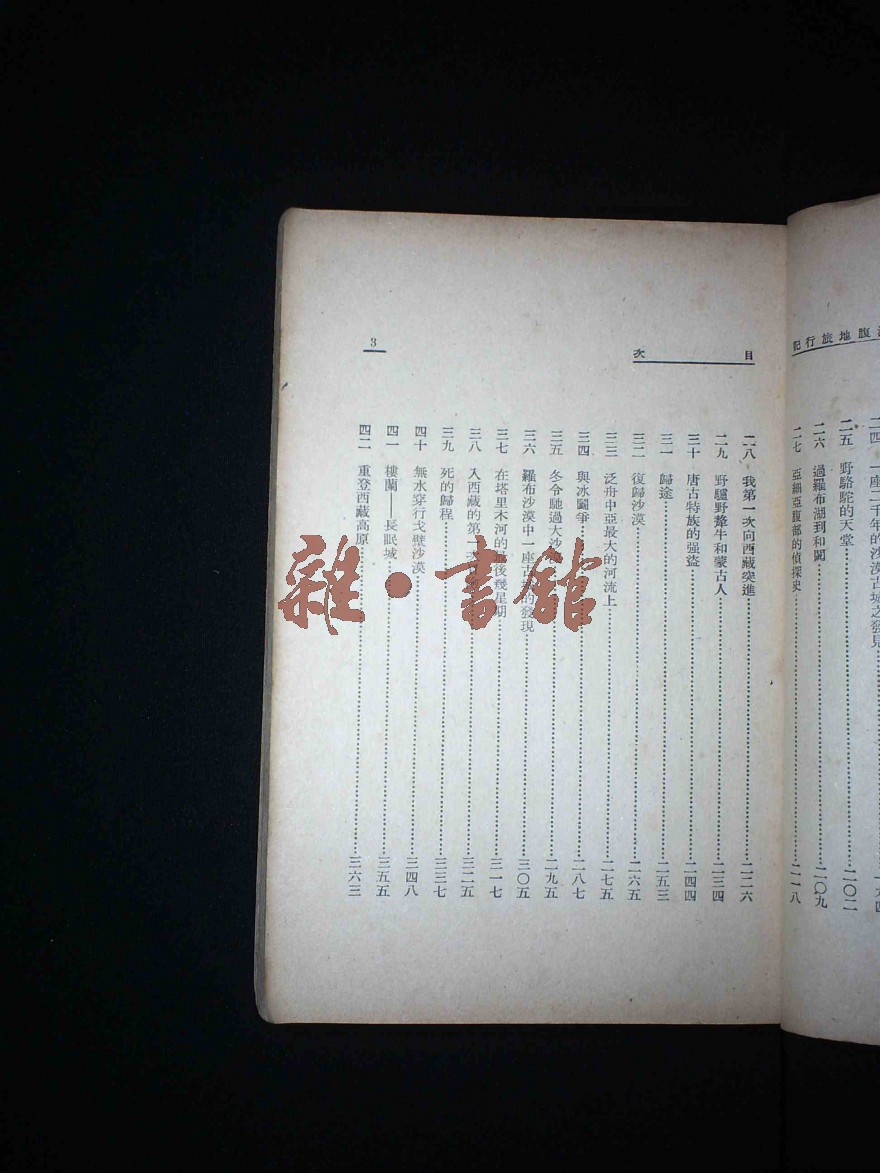 行地腹
旅記
二五 野駱駝的天堂……二〇二
二六 過羅布湖到和闐……二〇九
二七 亞細亞腹部的偵探史……二一八
目次
二八 我第一次向西藏突進……二二六
二九 野驢野犛牛和蒙古人……二三四
三十 唐古特族的强盜……二四四
三一 歸途……二五三
三二 復歸沙漠……二六五
三三 泛舟中亞最大的河流上……二七五
三四 與冰鬪爭……二八七
三五 冬令馳過大沙……二九五
三六 羅布沙漠中一座古 的發現……三〇五
三七 在塔里木河的最後幾星期……三一七
三八 入西藏的第一……三二五
三九 死的歸程……三三七
四十 無水穿行戈壁沙漠……三四八
四一 樓蘭——長眠城……三五五
四二 重登西藏高原……三六三
3
雜·書館